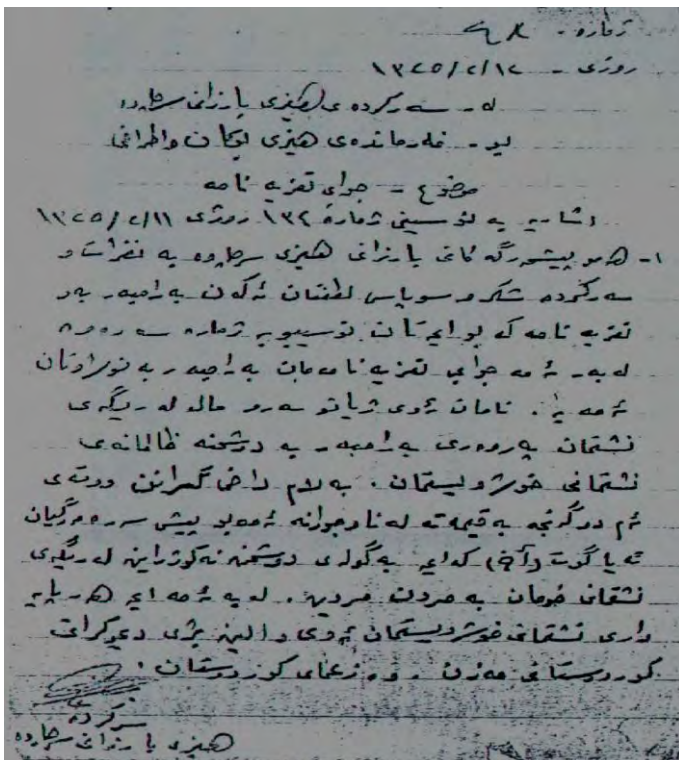 ژماره - ٤٨
روژی - ١٣٢٥/٢/١٢
له - سه رکرده ی هیزی بارزانی سرچاوه
بو - فه رمانده ی هیزی بوکان واطرافی
موضوع - جوابی تعزیه نامه
اشاره به نوسینی ژماره ١٣٢ روژی ١٣٢٥/٢/١١
١- هه مو پیشمه رگه کانی بارزانی هیزی سرچاوه به نفرات و
سه رکرده شکر و سوپاسی لطفتان ئه کەن به رامبه ر به و
تعزیه نامه که بو ایمتان نوسیبو به ژماره سه ره وه
له به ر ئه مه جوابی تعزیه نامه مان به رامبه ر به نوسراوتان
ئه مه یه . ئامان ئه وی ژیا تو سه رو ماله له ریگه ی
نشتمان په روه ری به رامبه ر به دوشمنه ظالمانه ی
نشتمانی خوشه ویستمان . به لام داخی گرانن ووته ی
ئم دو گنجه به قیمه ته له ناو جوانه ئه مه بو پیش سه ره مه رگیان
ئه یا گوت (آخ) که ایمه به گوله ی دوشمن نه کوژراین له ریگه ی
نشتمانی خومان به مردن مردین . له به ئه مه ایمه هه ر پایه
داری نشتمانی خوشه ویستمان ئه وی و الین بژی دیموکراتی
کوردستانی مه زن . وه زعمای کوردستان .
سرکرده ی
هیزی بارزانی سرچاوه